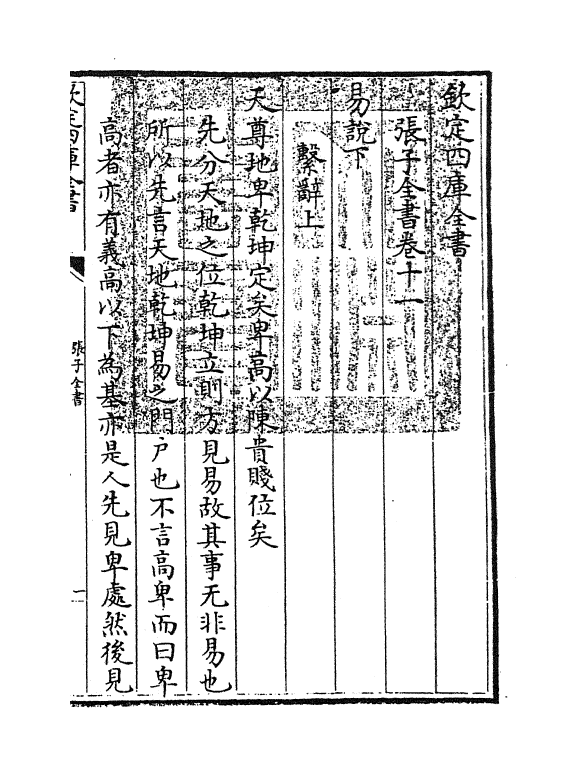 欽定四庫全書
張子全書卷十一
易說下
繫辭上
天尊地卑乾坤定矣卑高以陳貴賤位矣
先分天地之位乾坤立則方見易故其事无非易也
所以先言天地乾坤易之門戶也不言高卑而曰卑
高者亦有義高以下為基亦是人先見卑處然後見
欽定四庫全書
張子全書
一